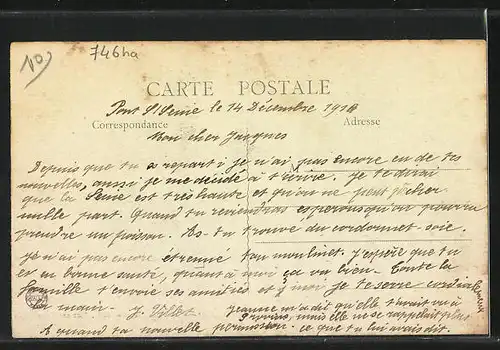 10
746ha
CARTE POSTALE
Pont S/Seine le 14 Décembre 1918
Correspondance
Adresse
Mon cher Jacques
Depuis que tu a reparti je n'ai pas encore eu de tes
nouvelles, aussi je me décide à t'écrire. Je te dirai
que la Seine est très haute et qu'on ne peut pêcher
nulle part. Quand tu reviendras esperons qu'on pourra
prendre un poisson. As-tu trouvé du cordonnet soie.
Je n'ai pas encore étrenné ton moulinet. J'espère que tu
es en bonne santé, quant à moi ça va bien. Toute la
famille t'envoie ses amitiés et moi je te serre cordialement
la main. J. Villet
Jeanne m'a dit qu'elle t'avait vu à
Provins, mais elle ne se rappelait plus
A quand ta nouvelle permission. ce que tu lui avais dit.